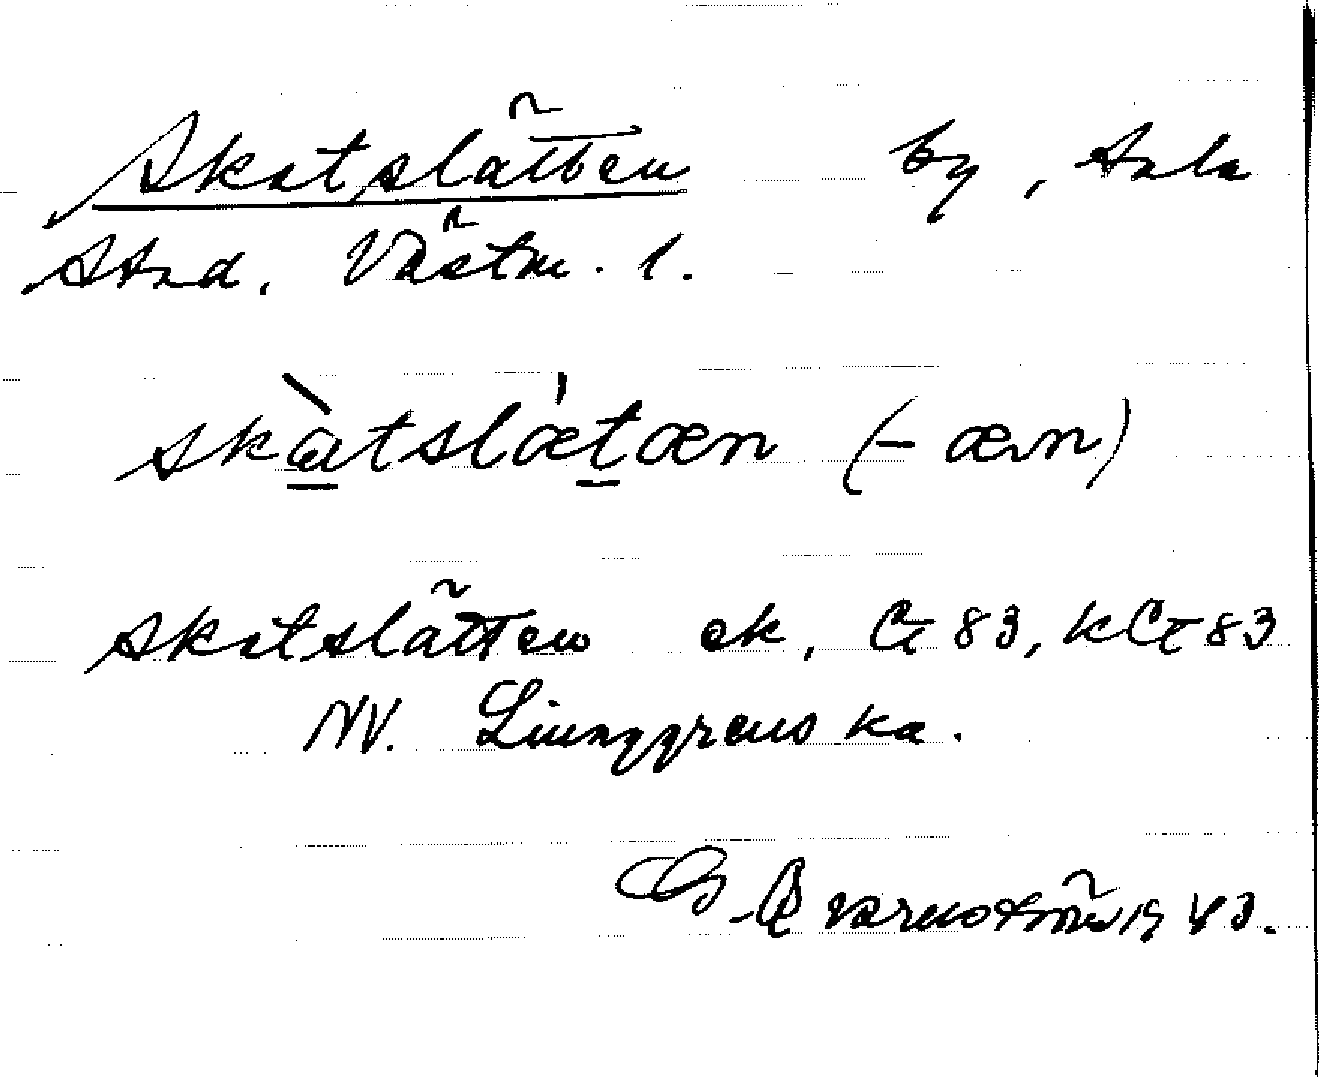 Skatslätten by, Sala
Stad. Västm. l.
skàtslætæn (-æn)
Skatslätten ek, Ct 83, KCt 83
NV. Liunggrens ka.
G. Qvarnström 1943.